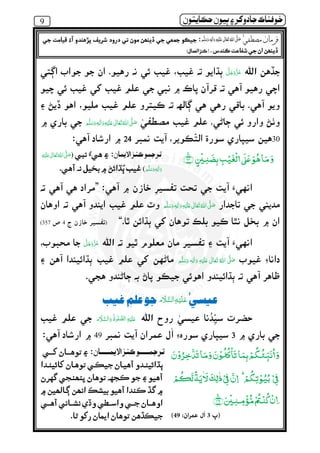 9
خوفناڪ جادوگر ۽ ٻيون حڪايتون
فرمانِ مصطفيٰ صلى الله تعالى عليه وآله وسلم: جيڪو جمعي جي ڏينهن مون تي درود شريف پڙهندو آءٌ قيامت جي
ڏينهن ان جي شفاعت ڪندس. (کنزالعمال)
جڏهن اللہ عزوجل ٻڌايو تہ غيب، غيب ئي نہ رهيو. ان جو جواب اڳئي
اچي رهيو آهي تہ قرآن پاڪ ۾ نبي جي علمِ غيب کي غيب ئي چيو
ويو آهي. باقي رهي هي ڳالھ تہ ڪيترو علمِ غيب مليو، اهو ڏيڻ ۽
وٺڻ وارو ئي ڄاڻي، علمِ غيب مصطفيٰ صلى الله تعالى عليه وآله وسلم جي باري ۾
30هين سيپاري سورة التڪوير، آيت نمبر 24 ۾ ارشاد آهي:
وَمَا هُوَ عَلَى الْغَيْبِ بِضَنِيْنٍ
ترجموڪنزالايمان: ۽ هيءُ نبي (صلى الله تعالى عليه
وآله وسلم) غيب ٻڌائڻ ۾ بخيل نہ آهي.
انهيءَ آيت جي تحت تفسيرِ خازن ۾ آهي: ”مراد هي آهي تہ
مديني جي تاجدار صلى الله تعالى عليه وآله وسلم وٽ علمِ غيب ايندو آهي تہ اوهان
ان ۾ بخل نٿا ڪيو بلڪ توهان کي ٻڌائن ٿا.“ (تفسير خازن ج 4 ص 357)
انهيءَ آيت ۽ تفسير مان معلوم ٿيو تہ اللہ عزوجل جا محبوب،
داناءِ غيوب صلى الله تعالى عليه وآله وسلم ماڻهن کي علمِ غيب ٻڌائيندا آهن ۽
ظاهر آهي تہ ٻڌائيندو اهوئي جيڪو پاڻ بہ ڄاڻندو هجي.
عيسيٰ عليه السلام جو علم غيب
حضرت سيّدنا عيسيٰ روح اللہ عليه الصلوة والسلام جي علمِ غيب
جي باري ۾ 3 سيپاري سورةءِ آلِ عمران آيت نمبر 49 ۾ ارشاد آهي:
وَاُنَبِّئُكُمْ بِمَا تَاْكُلُوْنَ وَمَا تَدَّخِرُوْنَ
فِيْ بُيُوْتِكُمْ اِنَّ فِيْ ذٰلِكَ لَاٰيَةً لَّكُمْ
اِنْ كُنْتُمْ مُّؤْمِنِيْنَ
(پ 3 آل عمران: 49)
ترجموڪنزالايمان: ۽ توهان کي
ٻڌائيندو آهيان جيڪي توهان کائيندا
آهيو ۽ جو ڪجهہ توهان پنهنجي گهرن
۾ گڏ ڪندا آهيو بيشڪ انهن ڳالهين ۾
اوهان جي واسطي وڏي نشاني آهي
جيڪڏهن توهان ايمان رکو ٿا.